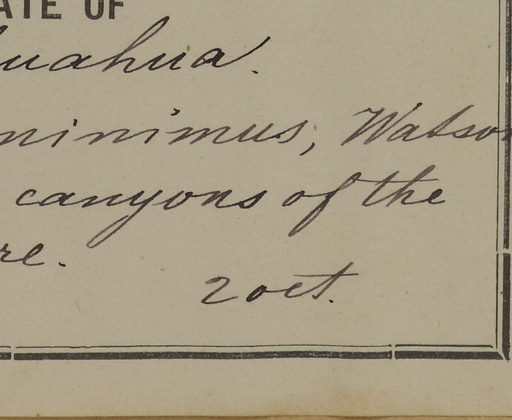 ATE OF
huahua.
minimus, Watson
canyons of the
re.
2 oct.